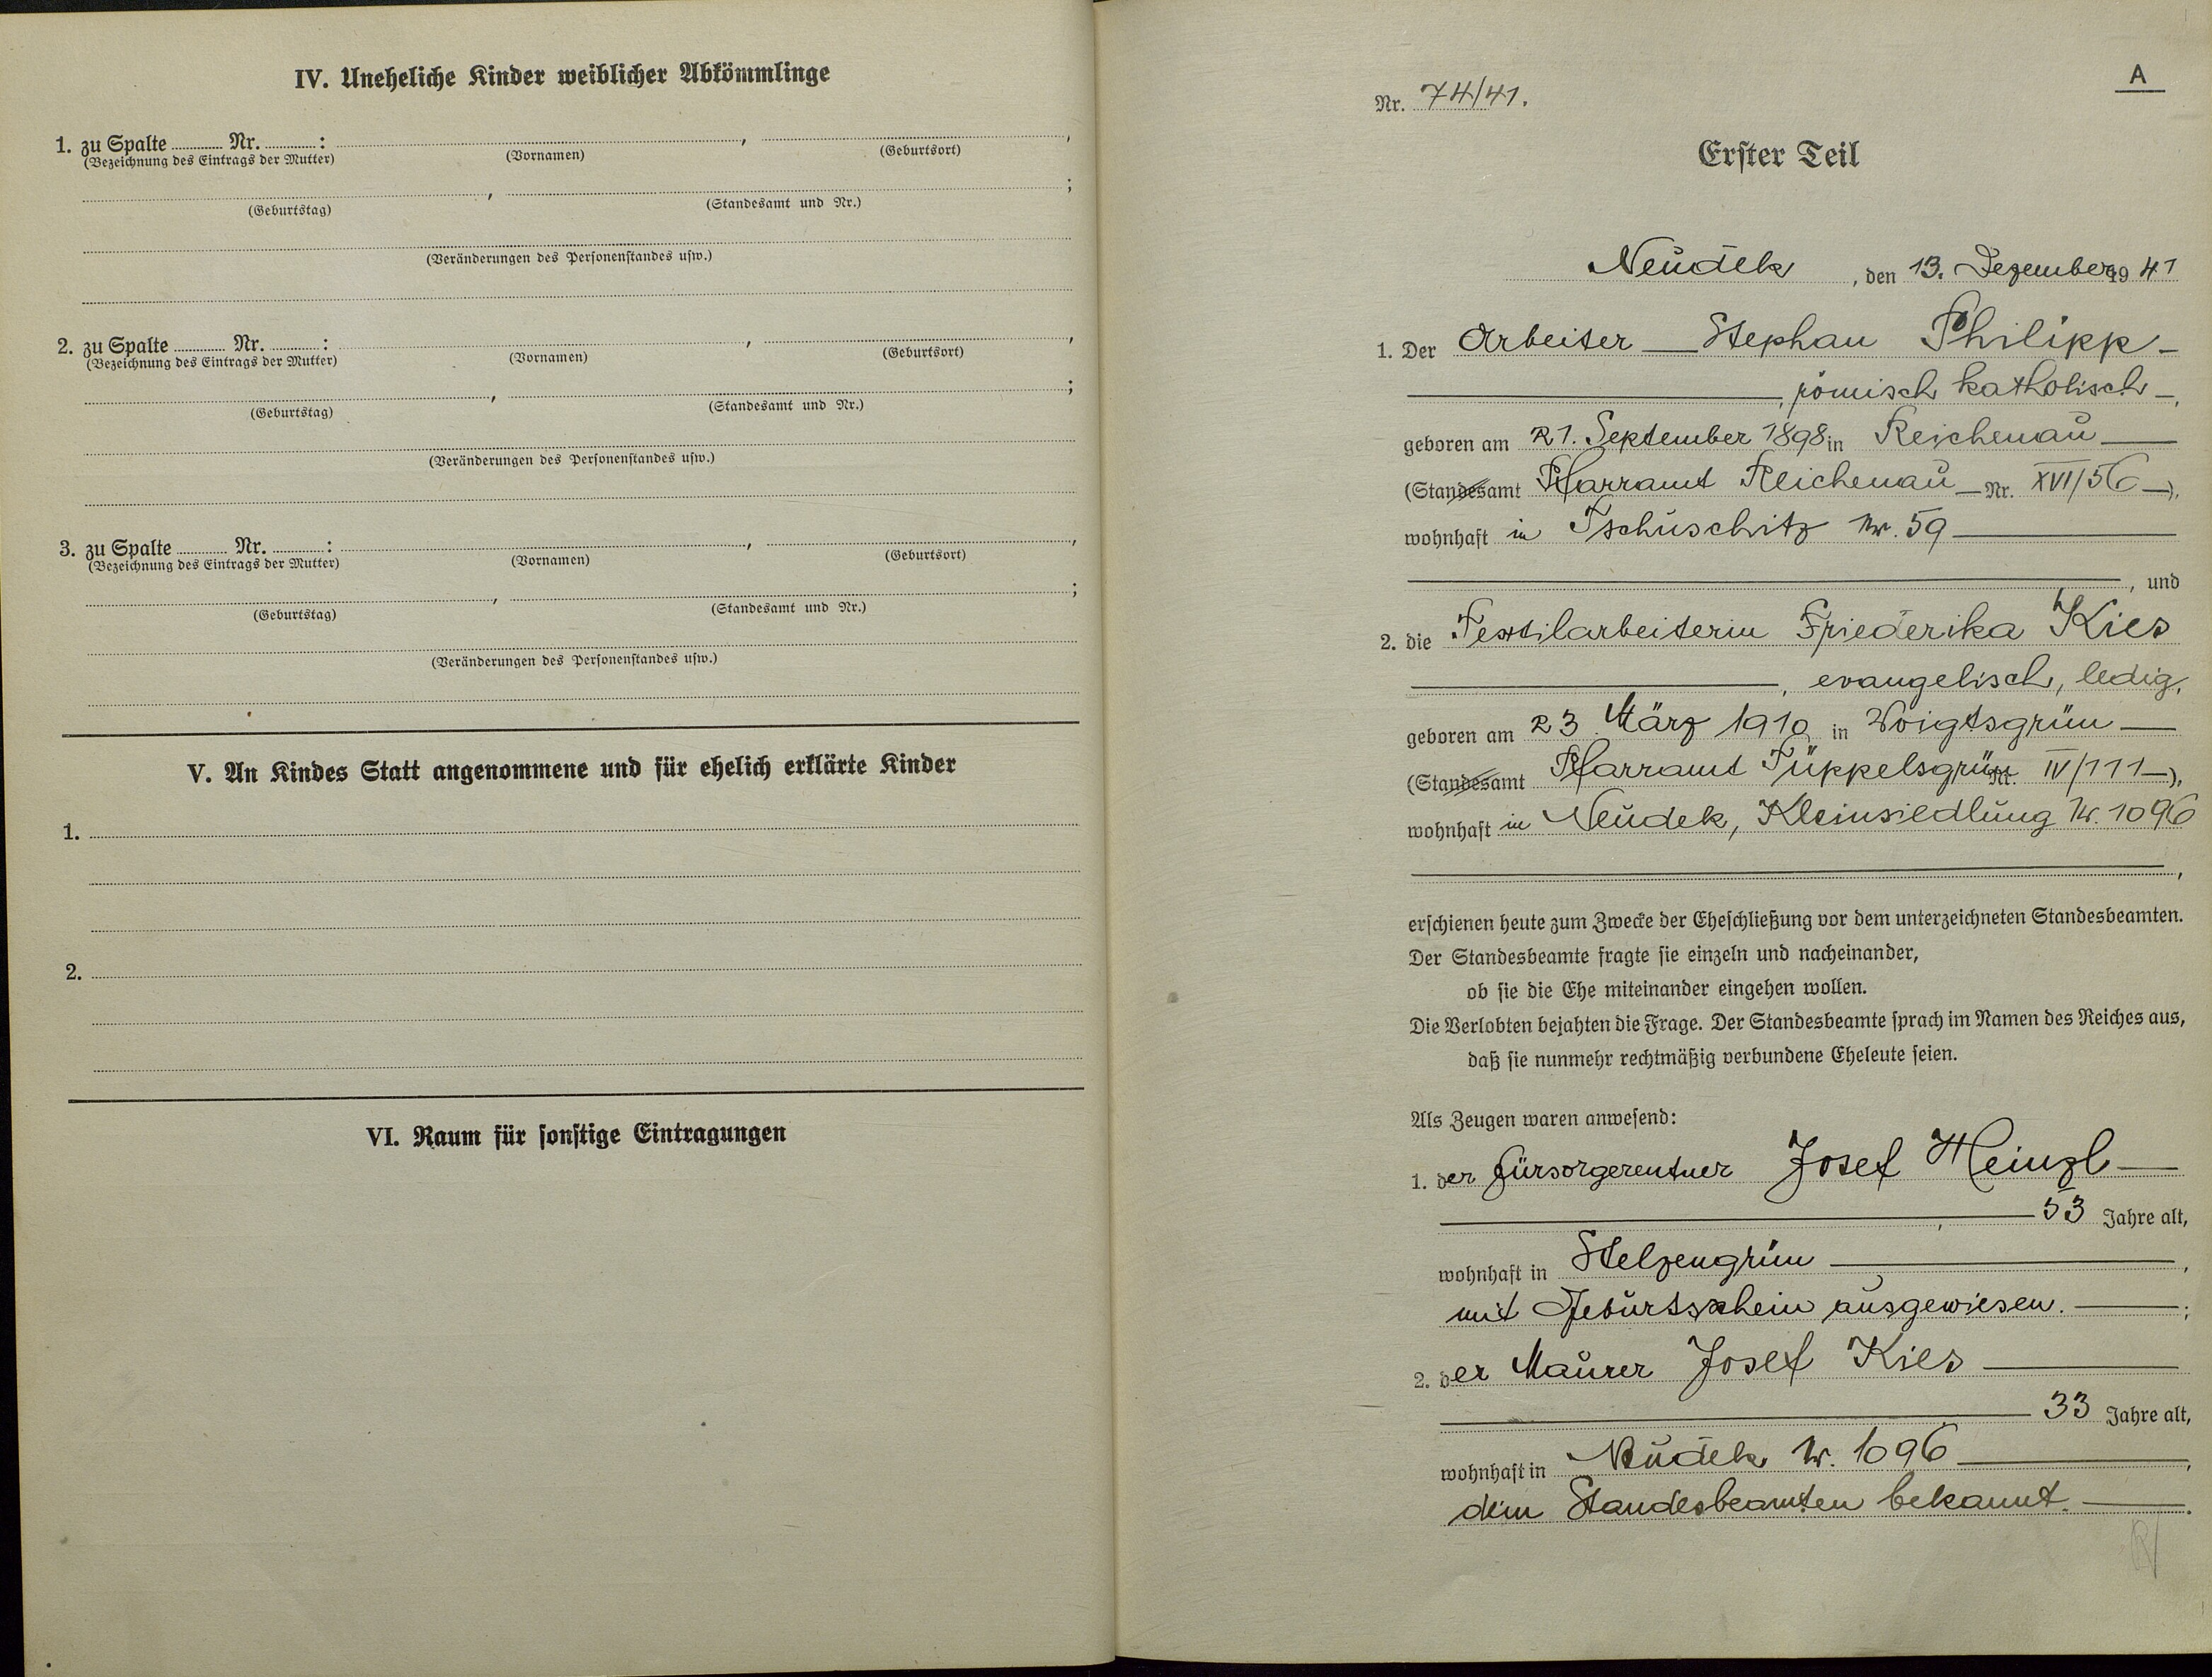 IV. Uneheliche Kinder weiblicher Abkömmlinge
1. zu Spalte ........ Nr. ........ : ........ , ........ ,
(Bezeichnung des Eintrags der Mutter) (Vornamen) (Geburtsort)
........ , ........ ;
(Geburtstag) (Standesamt und Nr.)
(Veränderungen des Personenstandes usw.)
2. zu Spalte ........ Nr. ........ : ........ , ........ ,
(Bezeichnung des Eintrags der Mutter) (Vornamen) (Geburtsort)
........ , ........ ;
(Geburtstag) (Standesamt und Nr.)
(Veränderungen des Personenstandes usw.)
3. zu Spalte ........ Nr. ........ : ........ , ........ ,
(Bezeichnung des Eintrags der Mutter) (Vornamen) (Geburtsort)
........ , ........ ;
(Geburtstag) (Standesamt und Nr.)
(Veränderungen des Personenstandes usw.)
V. An Kindes Statt angenommene und für ehelich erklärte Kinder
1.
2.
VI. Raum für sonstige Eintragungen
A
Nr. 74/41.
Erster Teil
Neudek, den 13. Dezember 1941
1. Der Arbeiter — Stephan Philipp —
—, römisch katholisch —,
geboren am 21. September 1898 in Reichenau —
(Standesamt Pfarramt Reichenau — Nr. XVI/56 —),
wohnhaft in Tschuschitz Nr. 59 —
—, und
2. die Textilarbeiterin Friederika Kies
—, evangelisch, ledig,
geboren am 23. März 1910 in Voigtsgrün —
(Standesamt Pfarramt Tüppelsgrün Nr. IV/111 —),
wohnhaft in Neudek, Kleinsiedlung Nr. 1096
—,
erschienen heute zum Zwecke der Eheschließung vor dem unterzeichneten Standesbeamten.
Der Standesbeamte fragte sie einzeln und nacheinander,
ob sie die Ehe miteinander eingehen wollen.
Die Verlobten bejahten die Frage. Der Standesbeamte sprach im Namen des Reiches aus,
daß sie nunmehr rechtmäßig verbundene Eheleute seien.
Als Zeugen waren anwesend:
1. der Fürsorgerentner Josef Heinzl —
—, — 53 Jahre alt,
wohnhaft in Stelzengrün —,
mit Geburtsschein ausgewiesen. —;
2. der Maurer Josef Kies —
— 33 Jahre alt,
wohnhaft in Neudek Nr. 1096 —,
dem Standesbeamten bekannt. —.